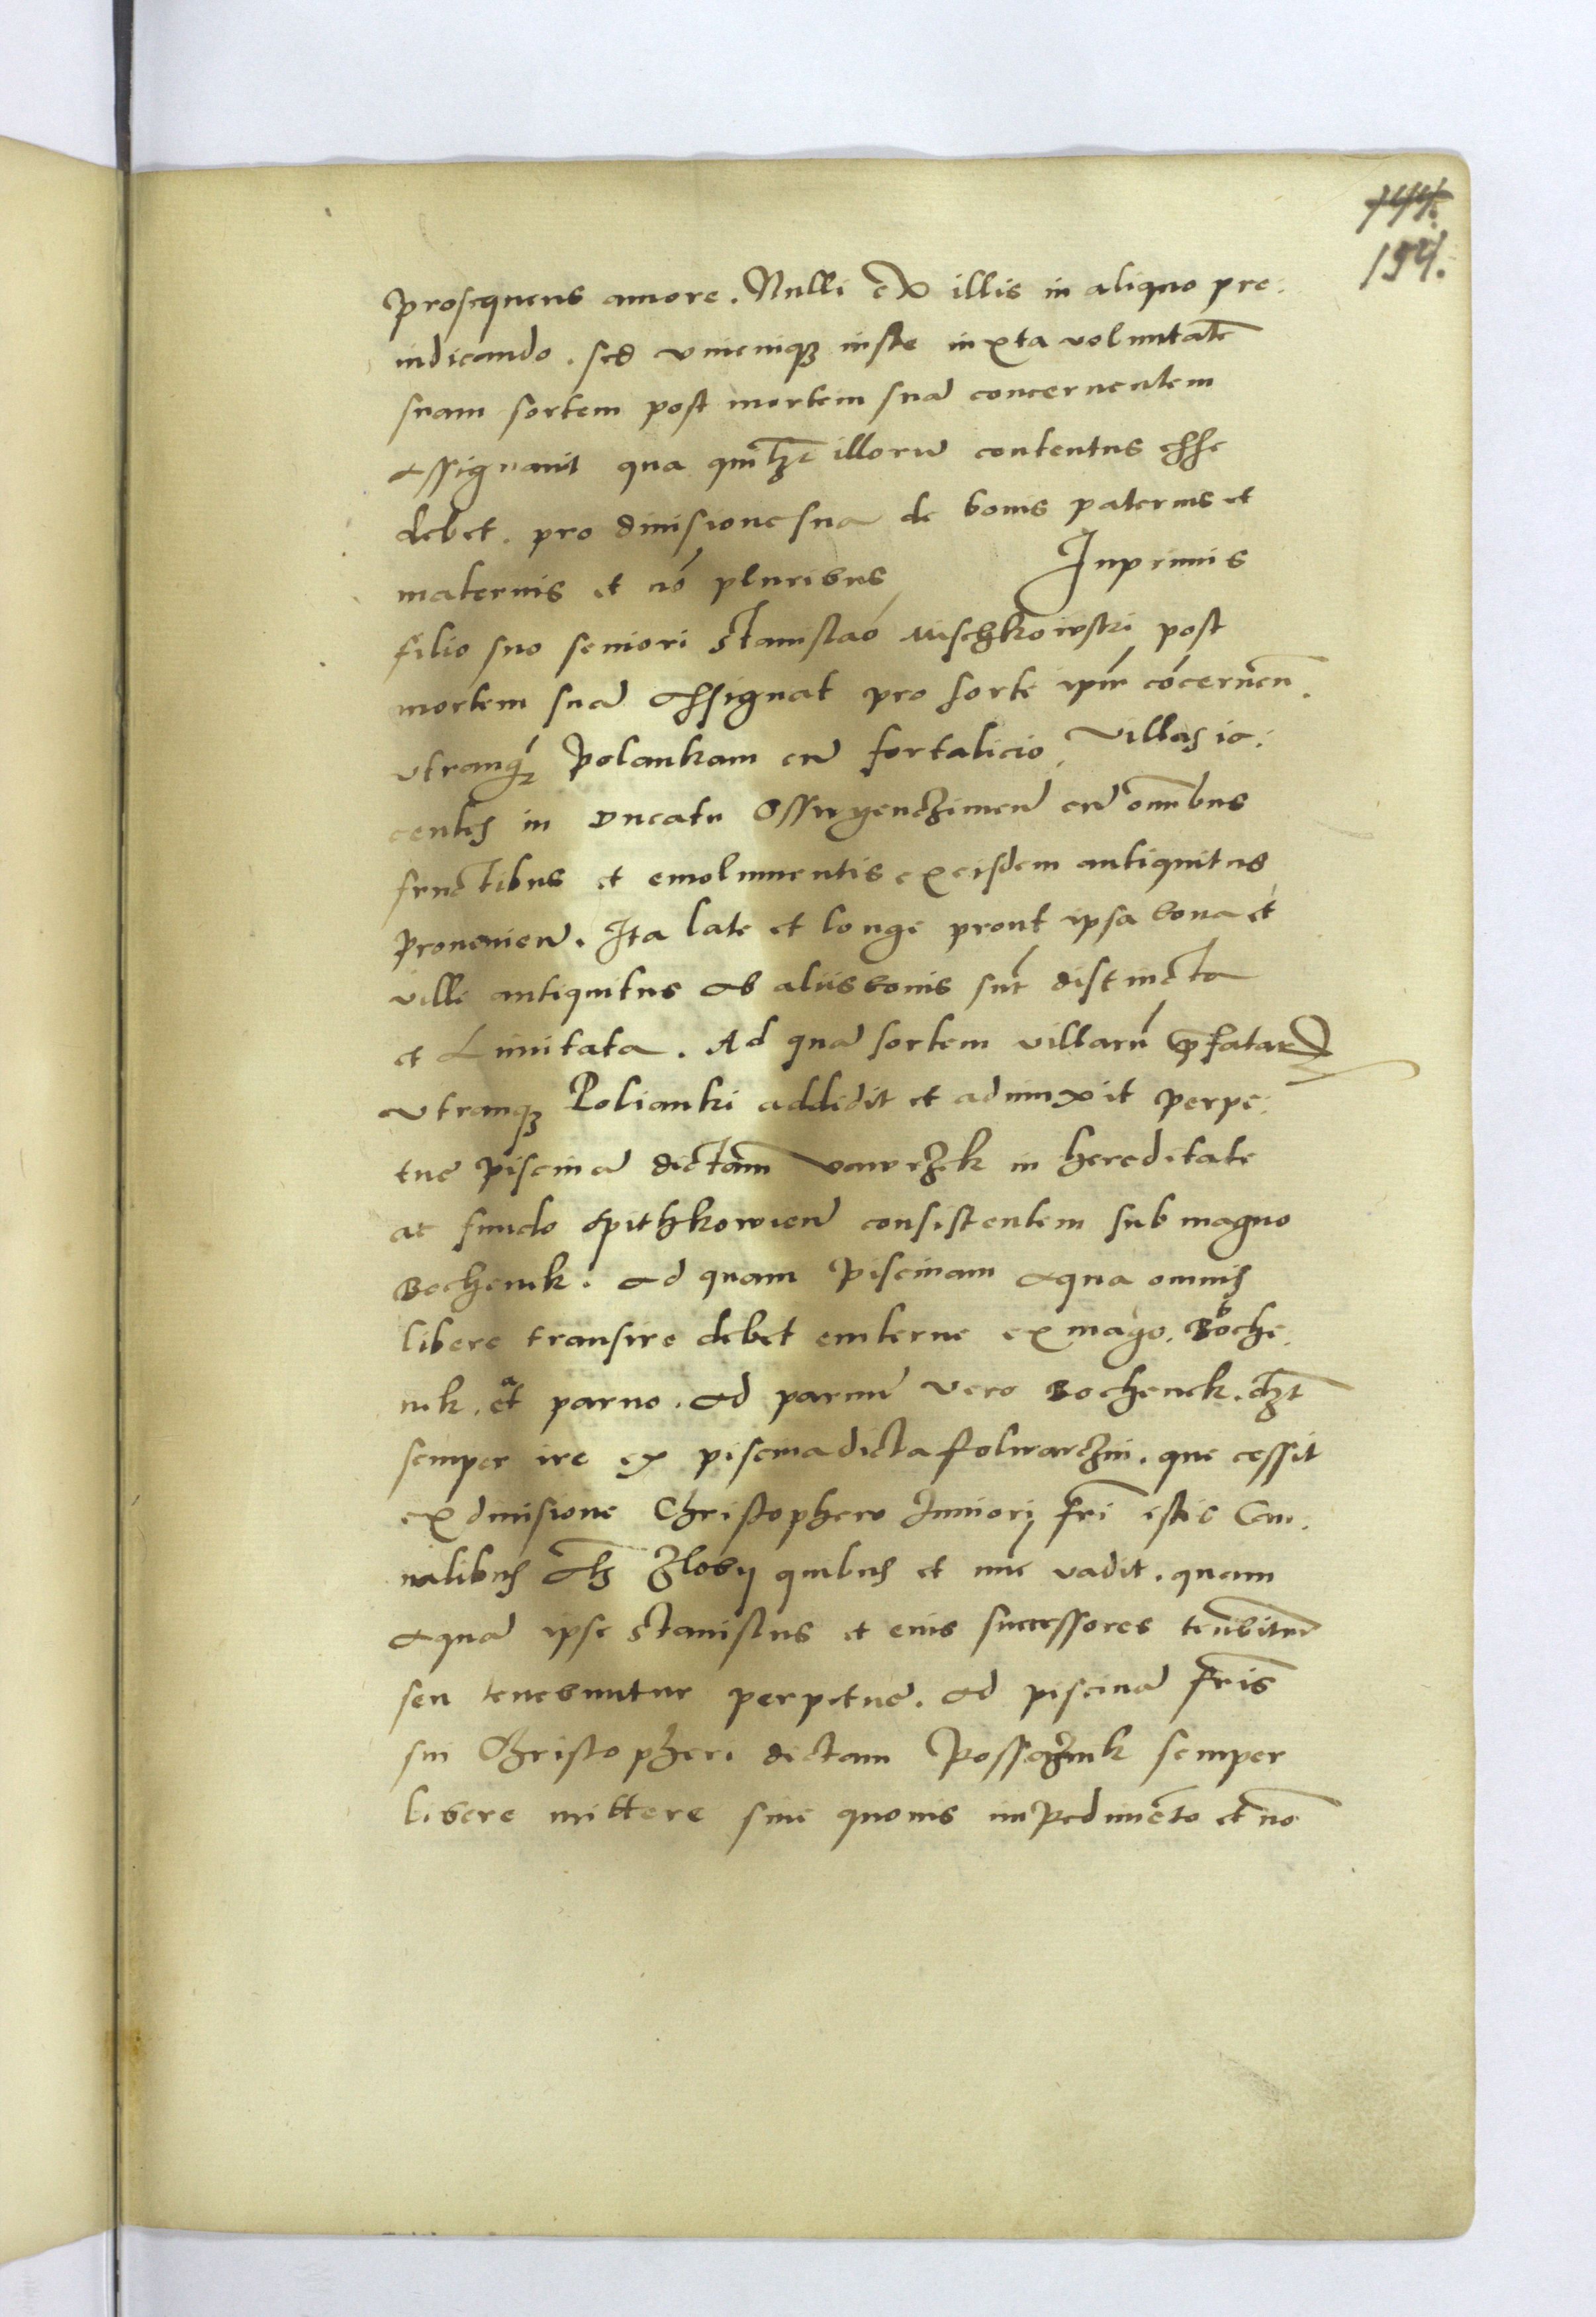 144.
194.
prosequens amore. Nulli ex illis in aliquo pre:
iudicando. sed vnicuiqȝ iuste iuxta voluntatē
suam sortem post mortem suā concernentem
assignauit qua quilibet illorū contentus esse
debet. pro diuisione sua de bonis paternis et
maternis et nō pluribus Inprimis
filio suo seniori Stanislaō Mischkowski post
mortem suā assignat pro sorte ipm̄ cōcernen̄.
vtranqȝ Polankam cū fortalicio villas ia:
centes in Ducatu Osswyenczimen̄ cū om̄ibus
fructibus et emolumentis ex eisdem antiquitus
prouenien̄. Ita late et longe prout ipsa bona et
ville antiquitus ab aliis bonis sūt distincta
et Limitata. Ad quā sortem villarū p̄fatar
vtranqȝ Polianki addidit et adiunxit perpe:
tue piscinā dictam̄ Vawrzik in hereditate
ac fundo Spithkowien̄ consistentem sub magno
Bochenik. ad quam piscinam aqua omnis
libere transire debet ex mago. Boche
nik. et paruo. ad paruū vero Bochenek. debet
semper ire ex piscina dicta folwarczni. que cessit
ex diuisione Christophero Iuniori fri istis Can:
nalibus als Zloby quibus et nūc vadit. quam
aquā ipse Stanislus et eius successores tenebitur
seu tenebuntur perpetue. ad piscinā fris
sui Christopheri dictam semper
libere mittere sine quouis impedimēto et nō